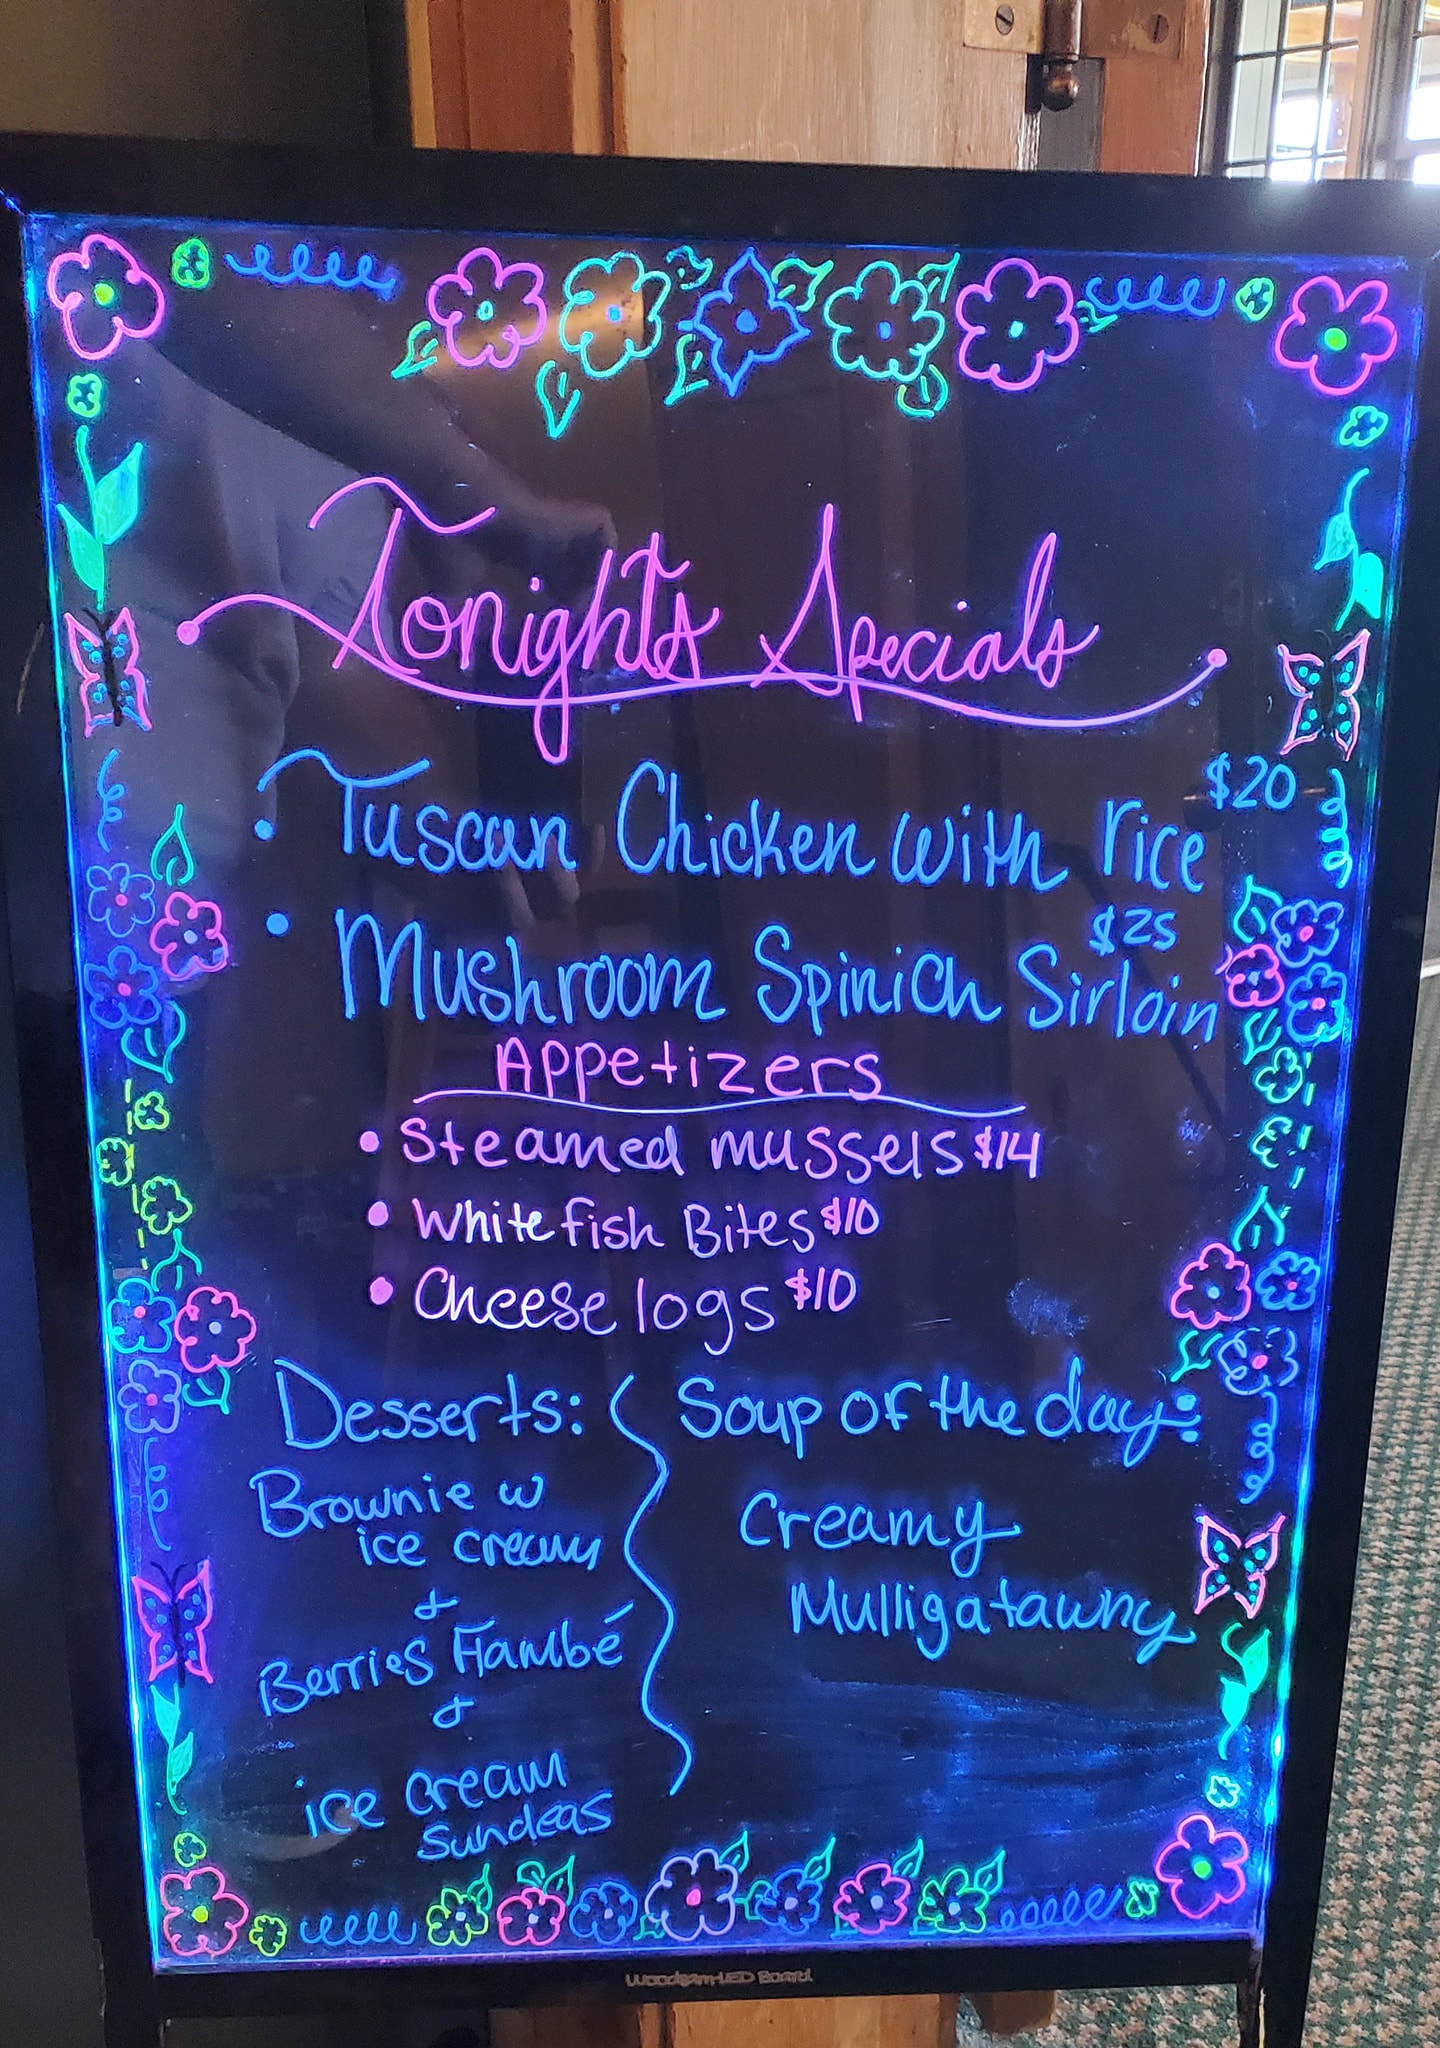 Tonights Specials
$20
• Tuscan Chicken with rice
$25
• Mushroom Spinich Sirloin
Appetizers
• Steamed mussels $14
• White fish Bites $10
• Cheese logs $10
Desserts:
Brownie w
ice cream
&
Berries Flambé
&
ice cream
Sundeas
Soup of the day:
Creamy
Mulligatawny